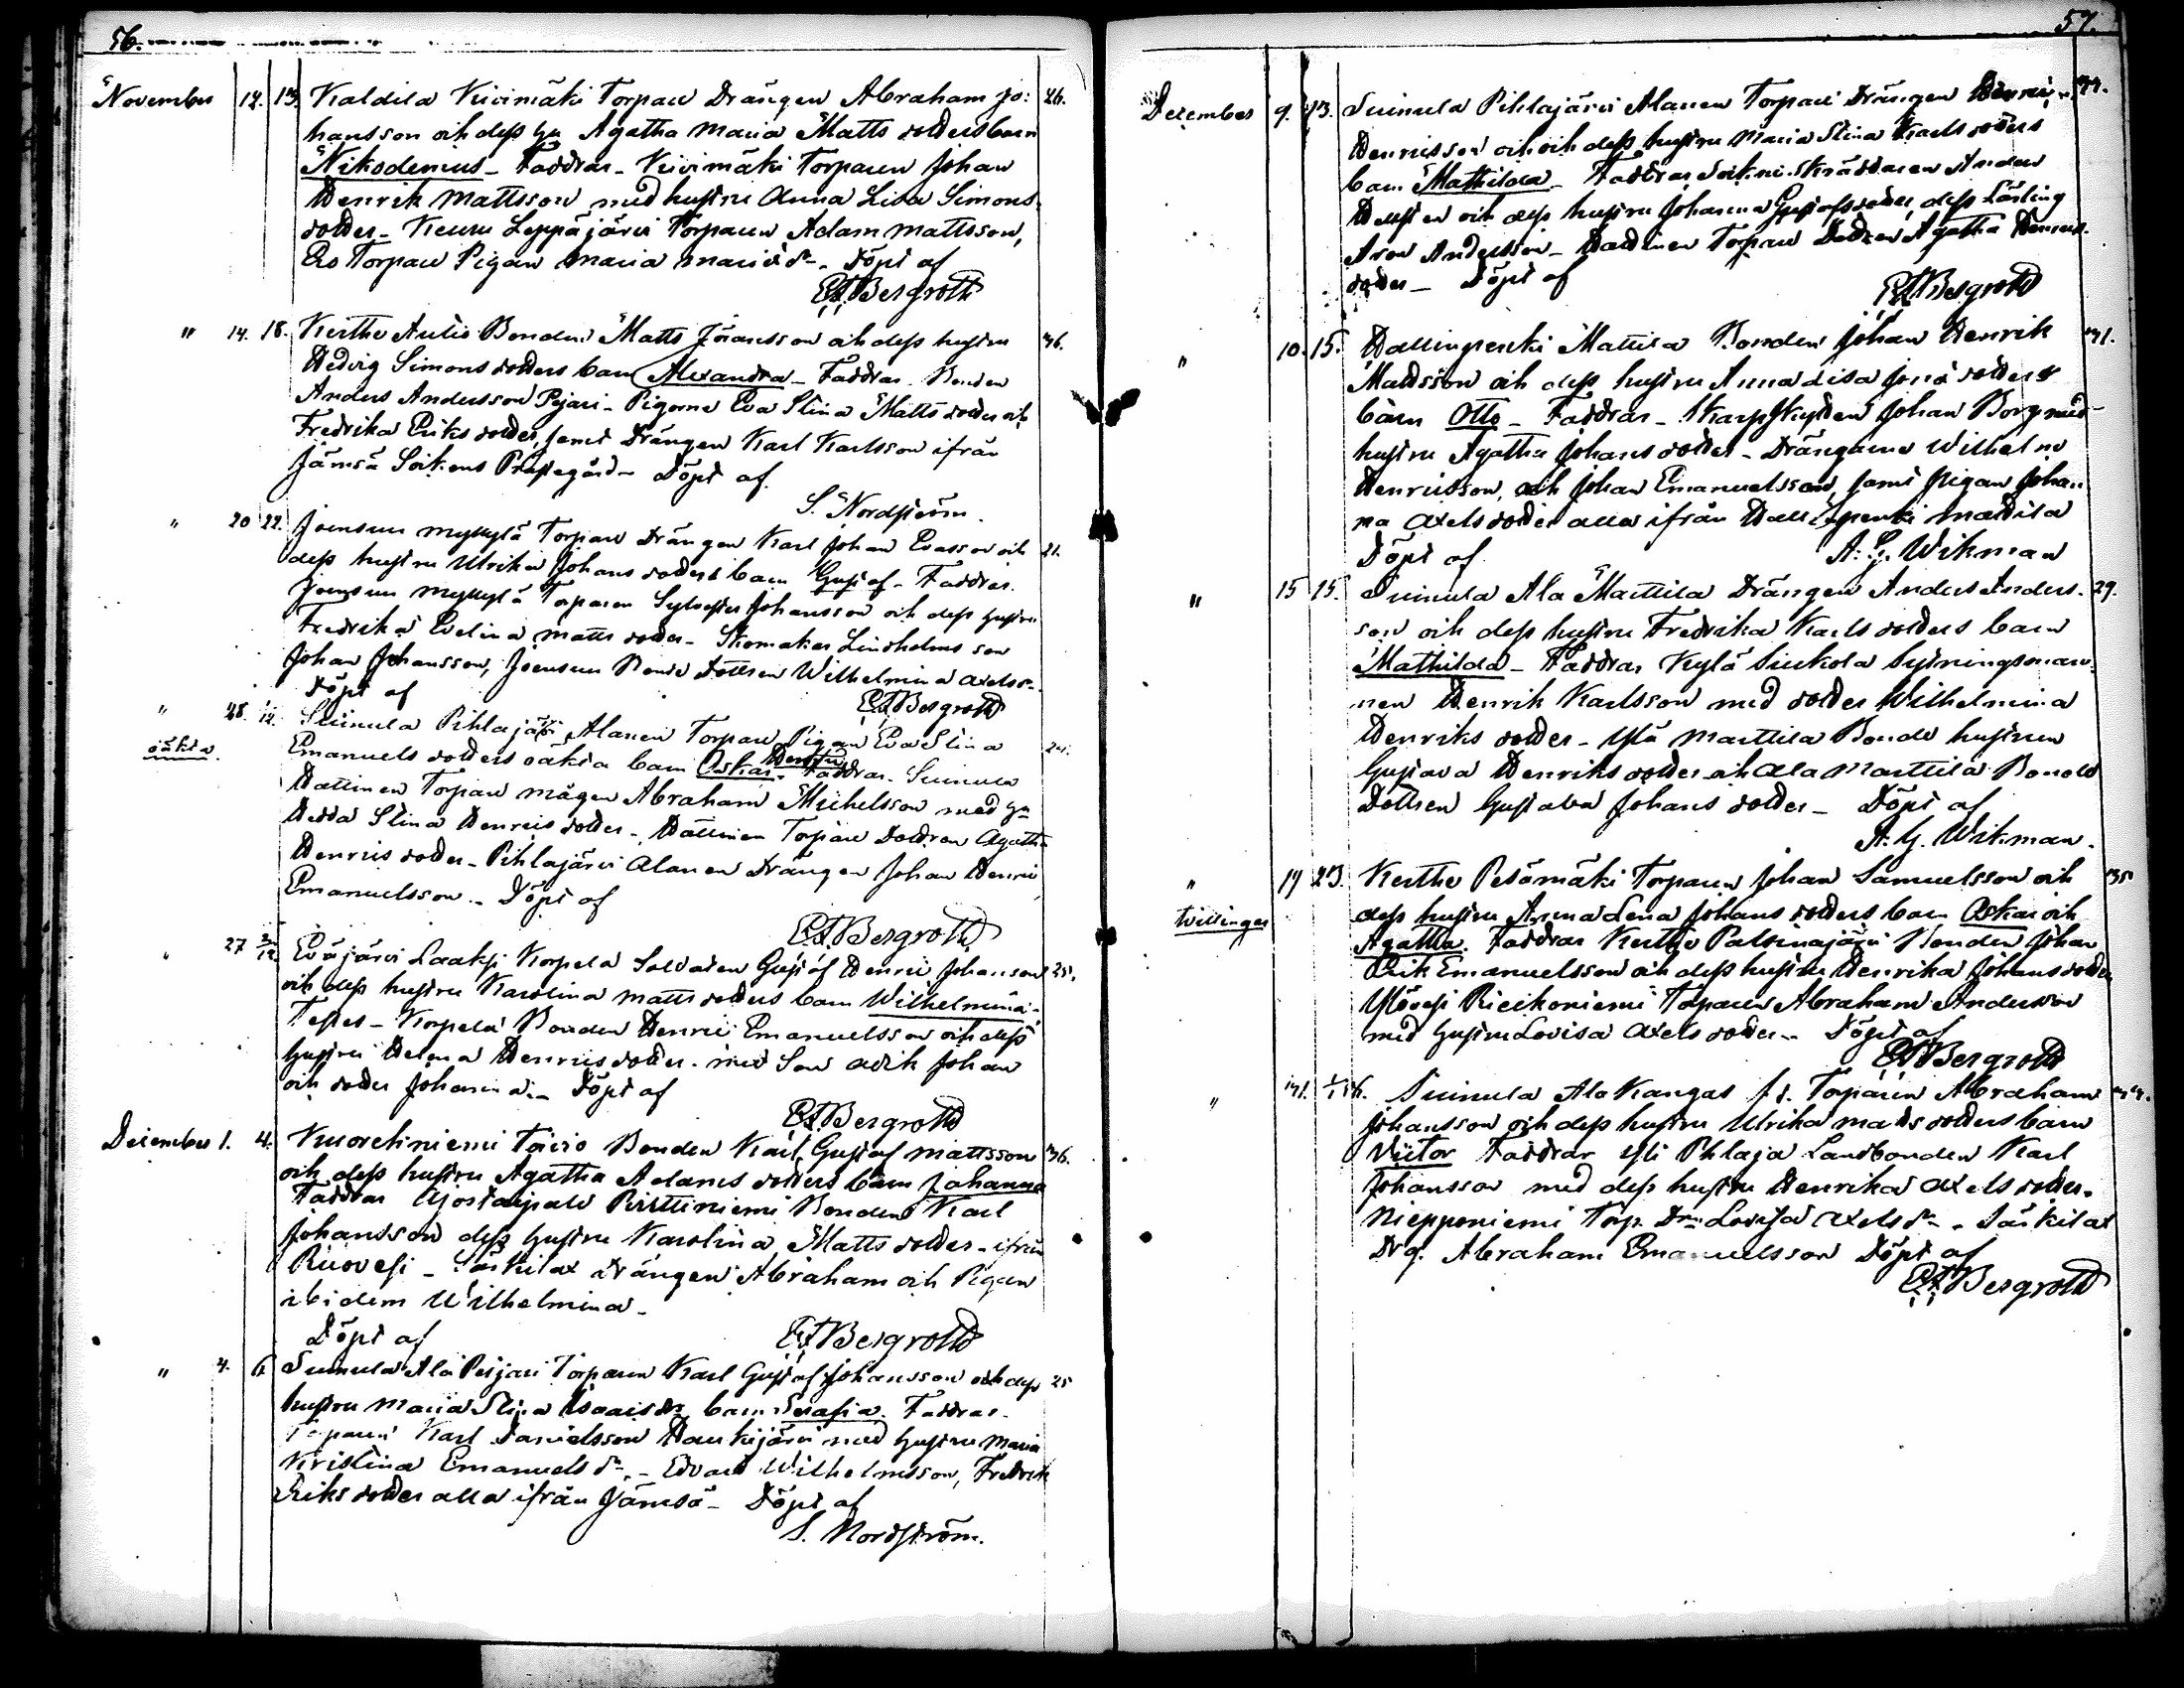 56.
November 12. 13. Kaldila Kivimäki Torpare Drängen Abraham Jo: 26.
hansson och dess hu Agatha Maria Matts dotters barn
Nikodemus - Faddrar - Kivimäki Torparen Johan
Henrik Mattsson med hustru Anna Lisa Simons
dotter - Keuru Leppäjärvi Torparen Adam Mattsson,
Torpare Pigan Maria Dr - Döpt af
E A Bergroth
" 14. 18. Kerthe Bonden Matts Göransson och dess hustru 36.
Hedvig Simons dotters barn Alexandra - Faddrar Bonden
Anders Andersson Pejari - Pigorna Eva Stina Matts dotter och
Fredrika Eriks dotter, samt Drängen Karl Karlsson ifrån
Jämsä Sockens Prestegård - Döpt af
S. Nordström.
" 20 22. Joensuu Mykylä Torpare Drängen Karl Johan Evasson och 21.
dess hustru Ulrika Johans dotters barn Gustaf - Faddrar.
Joensuu Mykylä Torparen Sylvester Johansson och dess hustru
Fredrika Evelina Matts dotter - Skomakar Lindholms son
Johan Johansson, Joensuu Bonde Dottren Wilhelmina Axels dr.
Döpt af
E A Bergroth
" 28. Suinula Pihlajärvi Alanen Torpare Pigan Eva Stina 24.
oäkta. Emanuels dotters oäkta barn Oskar Henrik Faddrar - Suinula
Hatinen Torpare mågen Abraham Michelsson med hu
Hedda Stina Henrics dotter - Hatinen Torpare Dottren Agatha
Henrics dotter - Pihlajärvi Alanen Drängen Johan Henric
Emanuelsson - Döpt af
E A Bergroth
" 27 Eväjärvi Laaksi Korpela Soldaten Gustaf Henric Johansson 25.
och dess hustru Karolina Matts dotters barn Wilhelmina -
Testes - Korpela Bonden Henric Emanuelsson och dess
hustru Helena Henrics dotter - med Son Johan
och dotter Johanna - Döpt af
E A Bergroth
December 1. 4. Kuorehniemi Toivio Bonden Karl Gustaf Mattsson 36.
och dess hustru Agatha Adams dotters barn Johanna
Faddrar Pirttiniemi Bonden Karl
Johansson dess hustru Karolina Matts dotter - ifrån
Ruovesi - Säkilax drängen Abraham och Pigan
ibidem Wilhelmina -
Döpt af E A Bergroth
" 4. 6 Suinula Ala Peijari Torparen Karl Gustaf Johansson och dess 25
hustru Maria Stina Isaacs dr barn Serafia. Faddrar -
Torparen Karl Danielsson Haukijärvi med hustru Maria
Kristina Emanuels dr. - Edvard Wilhelmsson, Fredrik
Eriks dotter alla ifrån Jämsä - Döpt af
S. Nordström.
57.
December 9. 13. Suinula Pihlajärvi Alanen Torpare Drängen Henric
Henricsson och dess hustru Maria Stina Karls dotters
barn Mathilda - Faddrar Sockne Skräddaren Anders
och dess hustru Johanna Gustafs dotter, dess Lärling
Aron Andersson - Hatinen Torpare Dottren Agatha Henrics
dotter - Döpt af
E A Bergroth
" 10. 15. Hallinpenki Mattila Bonden Johan Henrik 41.
Mattsson och dess hustru Anna Lisa Jona dotters
barn Otto - Faddrar - Skarpskytten Johan Borg med
hustru Agatha Johans dotter - Drängarne Wilhelm
Henricsson, och Johan Emanuelsson, samt Pigan Johan
na Axels dotter alla ifrån Hallinpenki Mattila
Döpt af A. G. Wikman
" 15 15. Suinula Ala Marttila Drängen Anders Anders- 29.
son och dess hustru Fredrika Karls dotters barn
Mathilda - Faddrar Kylä Siukola Sytningsman
nen Henrik Karlsson med dotter Wilhelmina
Henriks dotter - Ylä Marttila Bonde hustrun
Gustava Henriks dotter och Ala Marttila Bonde
Dottren Gustava Johans dotter - Döpt af
A. G. Wikman.
" 19 23. Kerthe Pesämäki Torparen Johan Samuelsson och 35
tvillingar dess hustru Anna Lena Johans dotters barn Oskar och
Agatha. Faddrar Kerthe Palsinajärvi Bonden Johan
Erik Emanuelsson och dess hustru Henrika Johans dotter
Ylövesi Ricikoniemi Torparen Abraham Andersson
med hustru Lovisa Axels dotter - Döpt af
E A Bergroth
" Suinula Ala Kangas f.d. Torparen Abraham
Johansson och dess hustru Ulrika Matts dotters barn
Victor Faddrar Yli Pihlaja Landbonden Karl
Johansson med dess hustru Henrika Axels dotter.
Nieponiemi Torp. Dr. Lovisa Axels dr. - Säkilax
Drg. Abraham Emanuelsson Döpt af
E A Bergroth